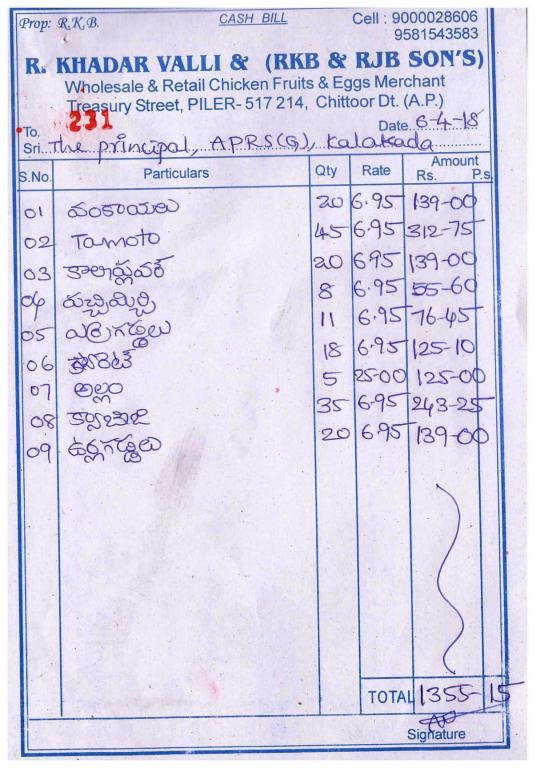 Prop: R.K.B. CASH BILL Cell : 9000028606
9581543583
R. KHADAR VALLI & (RKB & RJB SON'S)
Wholesale & Retail Chicken Fruits & Eggs Merchant
Treasury Street, PILER- 517 214, Chittoor Dt. (A.P.)
To. 231 Date 6-4-18
Sri. The principal, APRS(G), Kalakada
S.No. Particulars Qty Rate Amount Rs. P.s.
01 వంకాయలు 20 6.95 139-00
02 Tamoto 45 6.95 312-75
03 కాలీఫ్లవర్ 20 6.95 139-00
04 8 6.95 55-60
05 ఎర్రగడ్డలు 11 6.95 76-45
06 క్యారెట్ 18 6.95 125-10
07 అల్లం 5 25-00 125-00
08 క్యాబేజి 35 6.95 243-25
09 ఉర్లగడ్డలు 20 6.95 139-00
TOTAL 1355-15
Signature